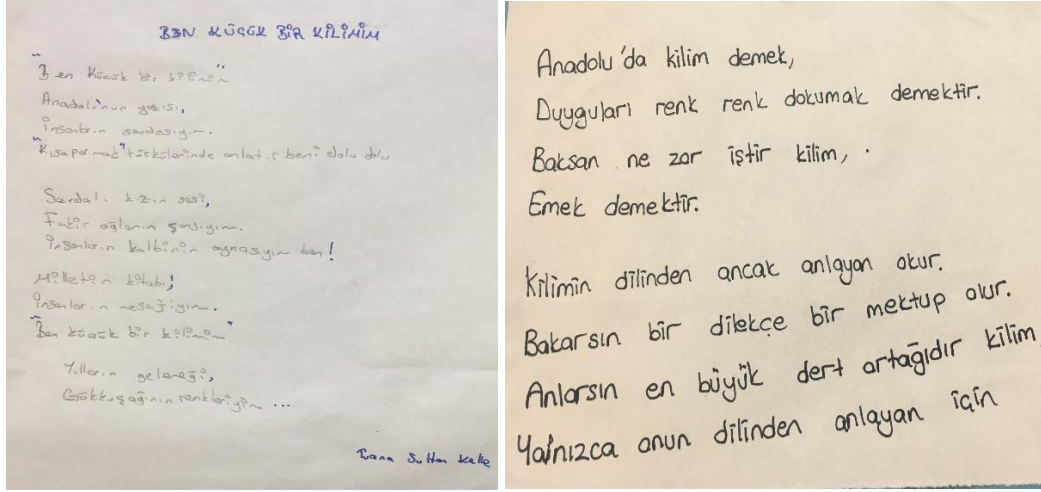 BEN KÜÇÜK BİR KİLİMİM
"Ben küçük bir kilimim"
Anadolu'nun yazısı,
İnsanların sevdasıyım.
"Kısaparmak" türkülerinde anlatır beni dolu dolu
Sevdalı kızın sesi,
Fakir oğlanın şansıyım.
İnsanların kalbinin aynasıyım ben!
Milletin kitabı;
İnsanların mesajıyım.
"Ben küçük bir kilimim"
Yılların geleneği,
Gökkuşağının renkleriyim ...
Sultan
Anadolu'da kilim demek,
Duyguları renk renk dokumak demektir.
Baksan ne zor iştir kilim,
Emek demektir.
Kilimin dilinden ancak anlayan okur.
Bakarsın bir dilekçe bir mektup olur.
Anlarsın en büyük dert ortağıdır kilim
Yalnızca onun dilinden anlayan için